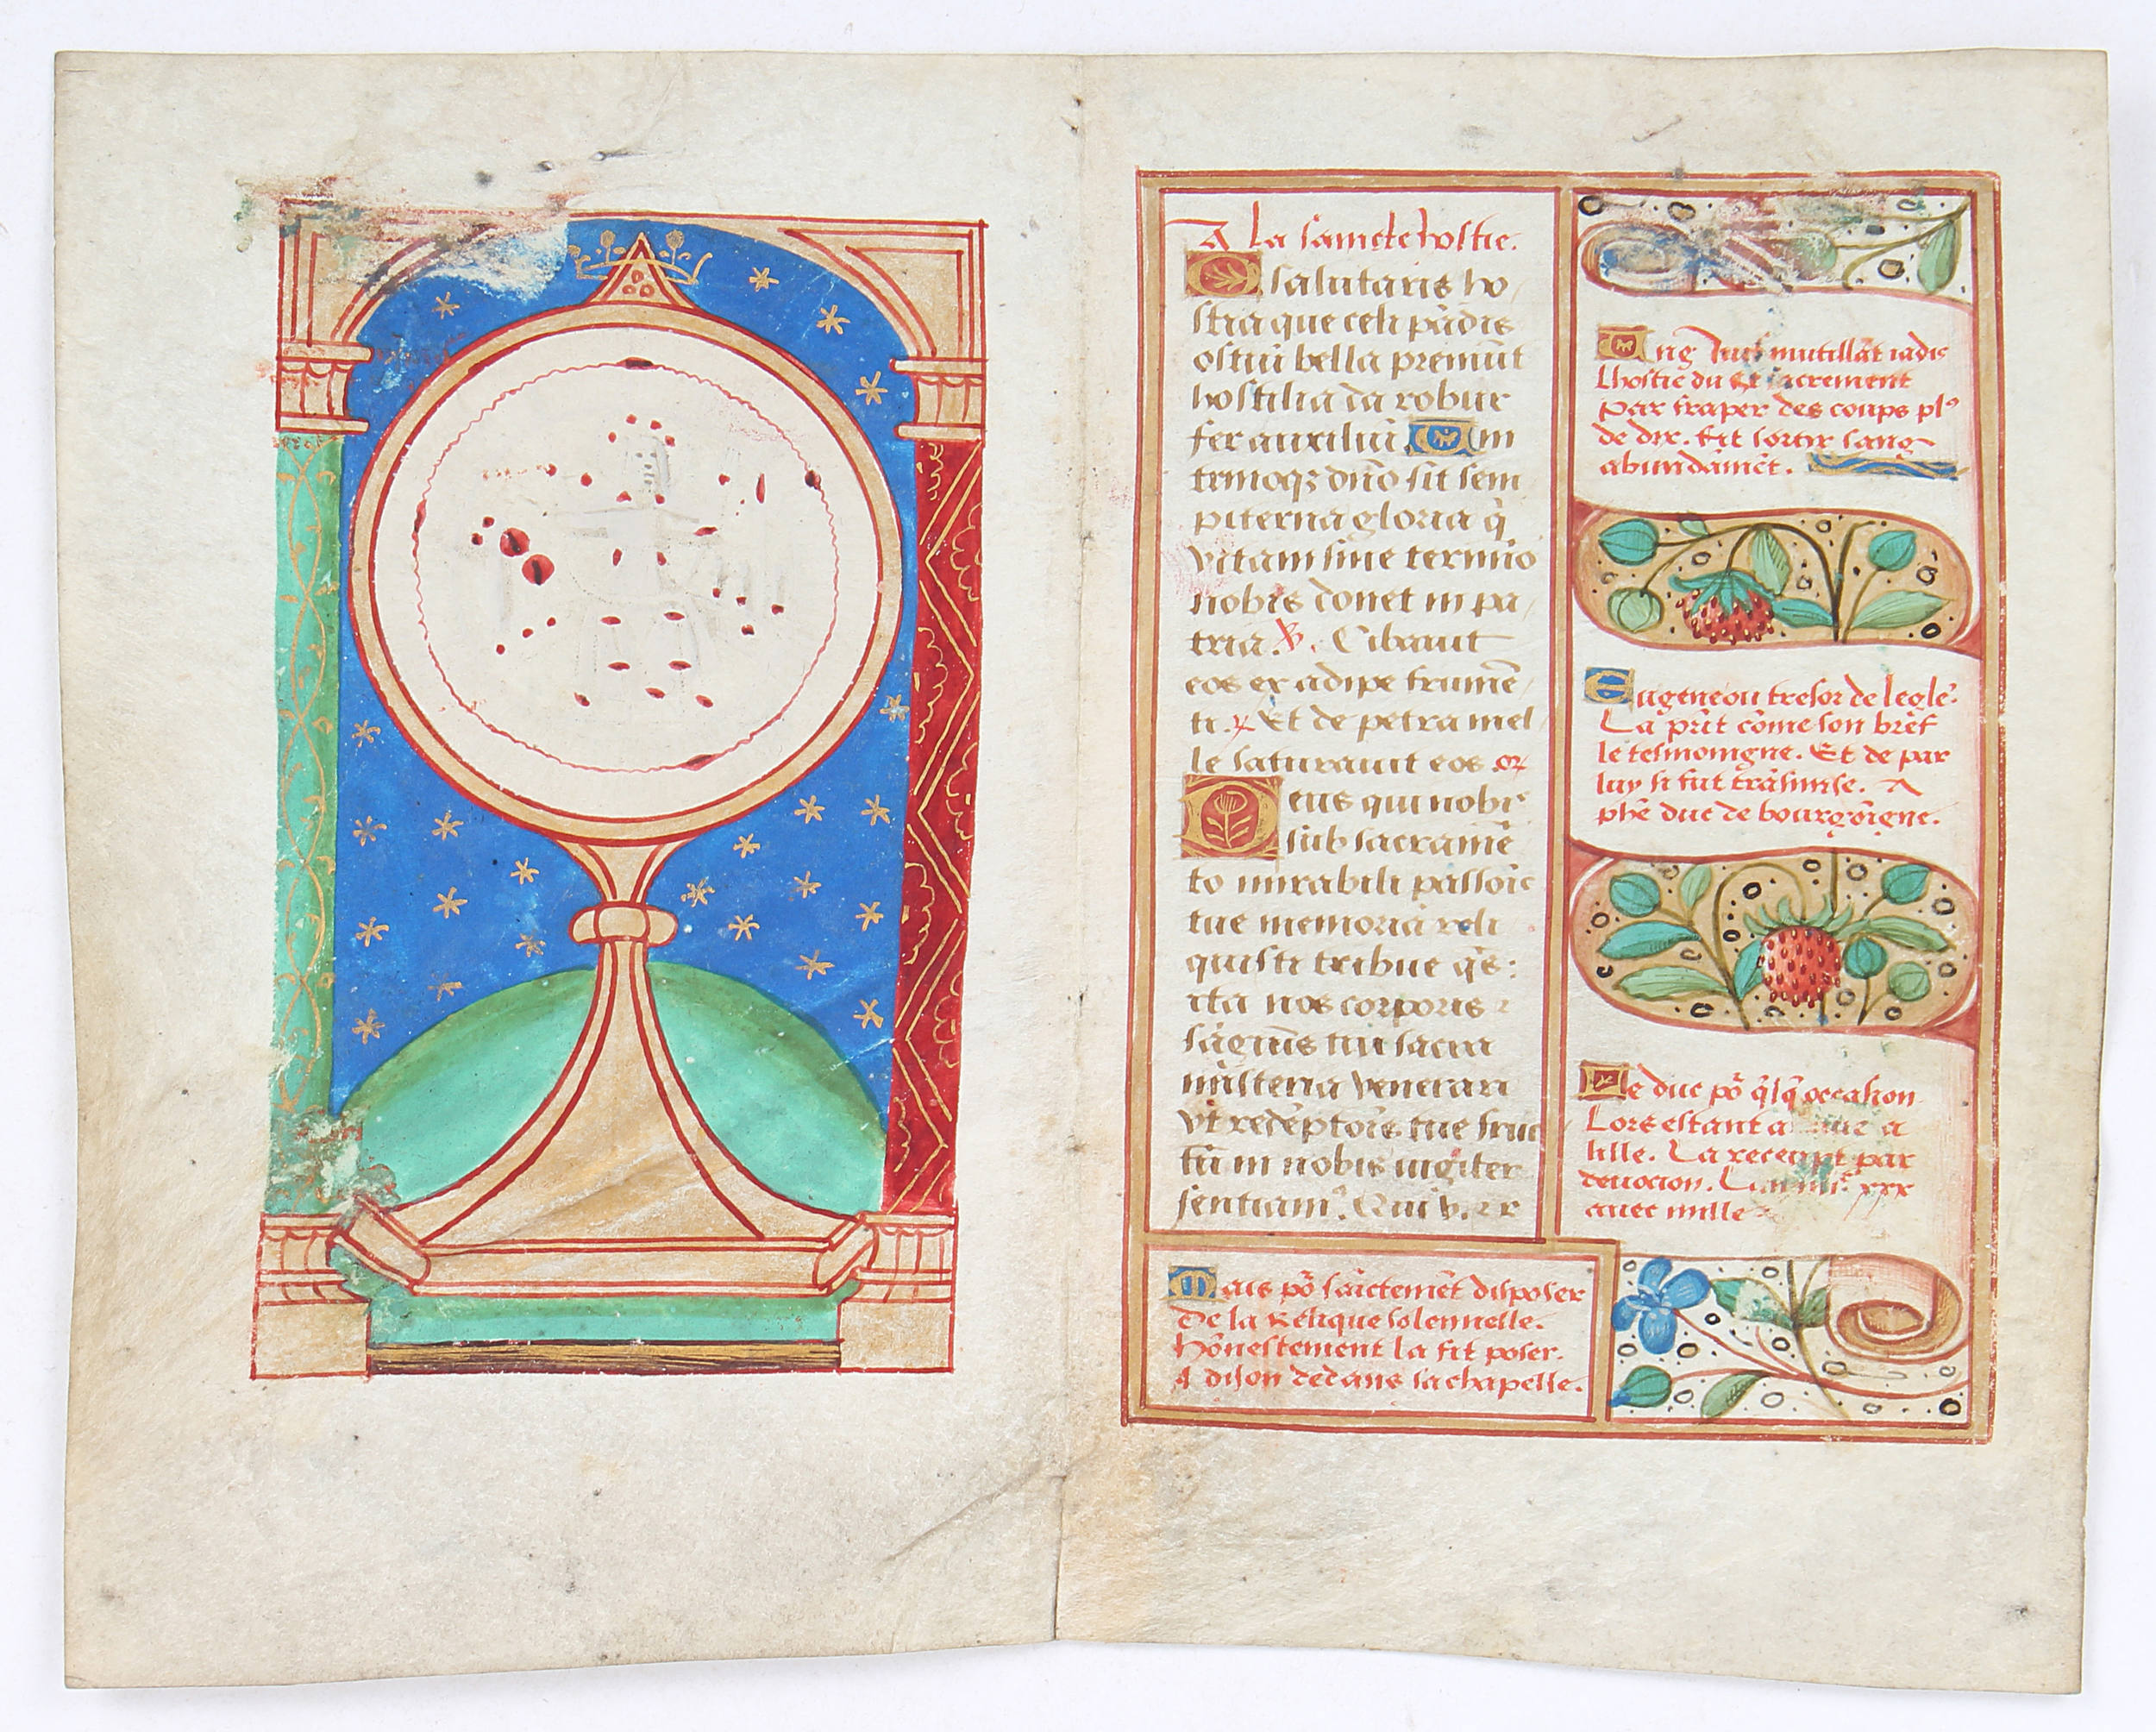 A la saincte hostie.
O salutaris ho
stia que celi pādis
ostiū bella premūt
hostilia da robur
fer auxiliū. Vni
trinoqȝ dn̄o sit sem
piterna gloria q̄
vitam sine termīo
nobis donet in pa
tria. ℣. Cibauit
eos ex adipe frumē
ti. ℟ Et de petra mel
le saturauit eos. or̄
Deus qui nobis
sub sacramē
to mirabili passiōis
tue memoriā reli
quisti tribue q̄s:
ita nos corporis ⁊
sāguīs tui sacra
misteria venerari
vt redēptiōis tue fruc
tū in nobis iugiter
sentiam᷒. Qui v. ⁊ r
Ung Juif mutillāt iadis
Lhostie du sᵗ sacrement
Par fraper des coups plꝰ
de dix. Fit sortir sang
abundāmēt.
Eugene ou tresor de legle᷒.
La prīt cōme son bref
le tesmoingne. Et de par
luy si fut trāsmise. A
phē duc de bourgōigne.
Le duc po᷒ q̄lq̄ occasion
Lors estant a
lille. La receupt par
deuocion. xxx
auec mille
Mais po᷒ saīctemēt disposer
De la Relique solennelle.
Hōnestement la fit poser.
A dijon dedans sa chapelle.